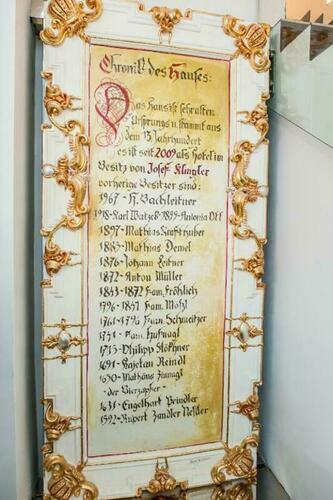 Chronik des Hauses:
Das Haus ist sehr alten
Ursprungs u. stammt aus
dem 13. Jahrhundert
es ist seit 2009 als Hotel im
Besitz von Josef Klingler
vorherige Besitzer sind:
1967 - H. Bachleitner
1918 - Karl Watzek - 1899 - Antonia Ott
1897 - Mathias Grafthuber
1883 - Mathias Demel
1876 - Johann Leitner
1872 - Anton Müller
1843 - 1872 Fam. Fröhlich
1796 - 1837 Fam. Mohl
1761 - 1796 Fam. Schweitzer
1751 - Fam. Hufnagl
1713 - Philipp
1691 - Kajetan Reindl
1650 - Mathäus
- der Bierzapfer -
1631 - Engelhart Peindler
1592 - Rupert Zandler